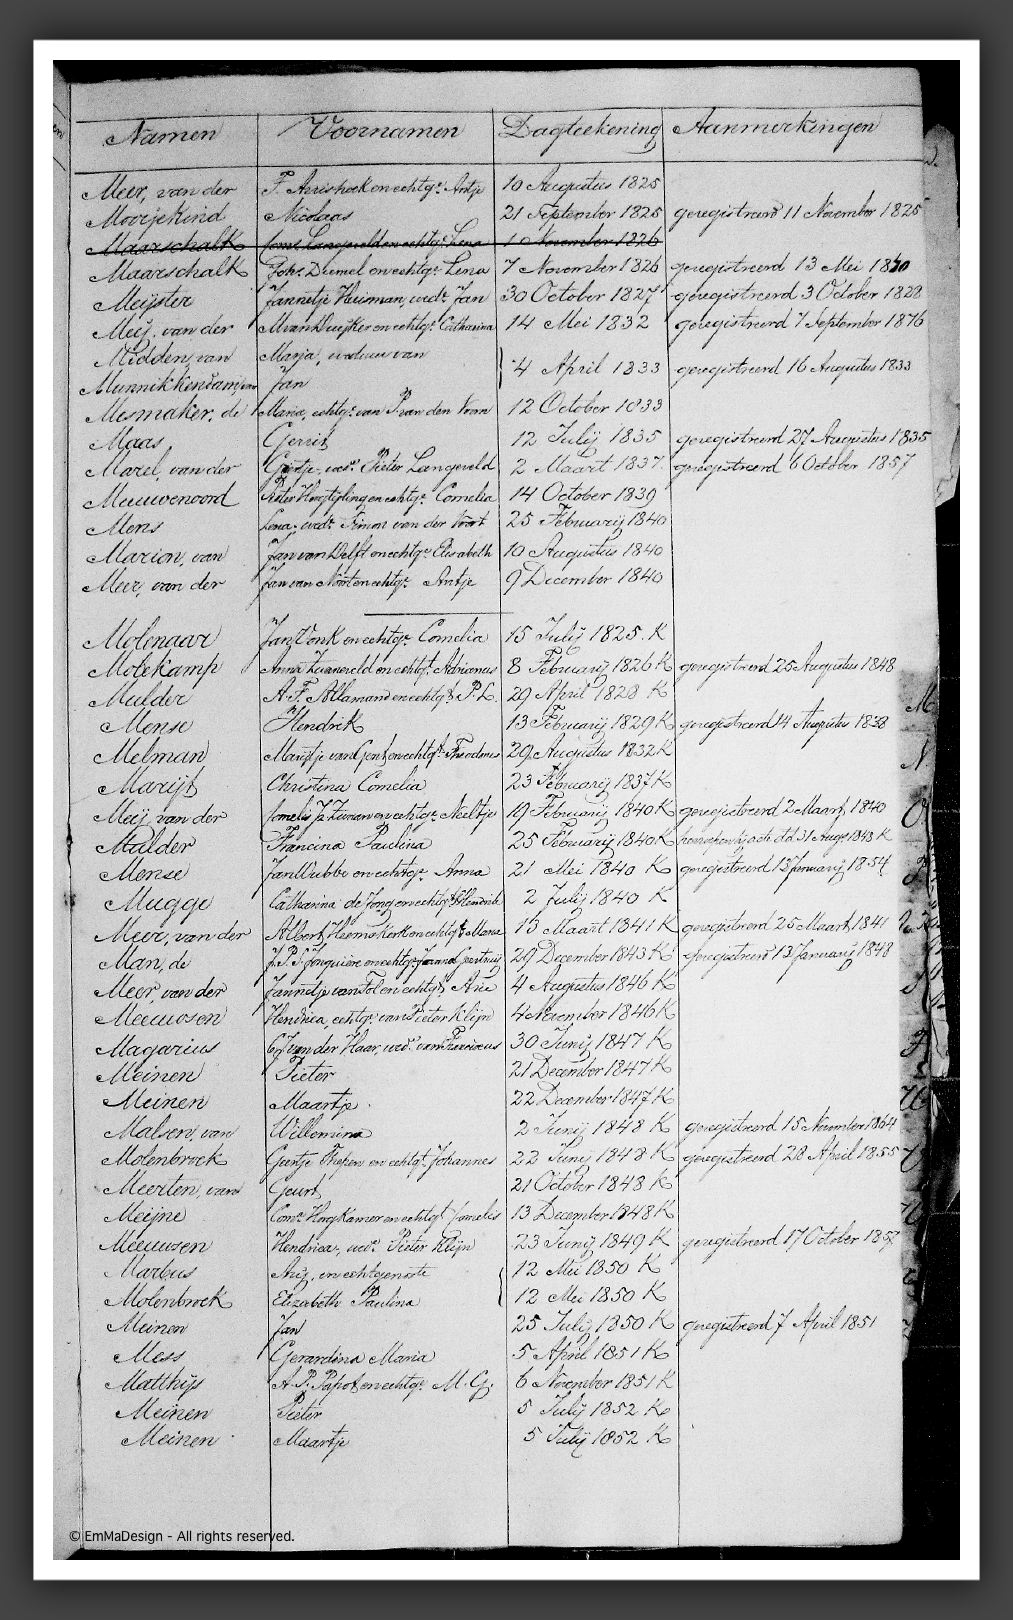 Namen Voornamen Dagteekening Aanmerkingen
Meer, van der F. Arishoek en echtge. Antje 10 Augustus 1825
Moorjekind Nicolaas 21 September 1825 geregistreerd 11 November 1825
Maarschalk Langeveld en echtge. Lena 1 November 1826
Maarschalk Johs. Driemel en echtge. Lena 7 November 1826 geregistreerd 13 Mei 1830
Meijster Jannetje Huisman, wede. Jan 30 October 1827 geregistreerd 3 October 1828
Meij, van der M van Duijker en echtge. Catharina 14 Mei 1832 geregistreerd 7 September 1876
Midden, van Marja, weduwe van
Munnikkendam, van Jan 4 April 1833 geregistreerd 16 Augustus 1833
Mesmaker, de Maria, echtge. van P. van den Vroon 12 October 1833
Maas Gerrit 12 Julij 1835 geregistreerd 27 Augustus 1835
Marel, van der Grietje, wede. Pieter Langeveld 2 Maart 1837. geregistreerd 6 October 1857
Meeuwenoord Pieter Hoogtijling en echtge. Cornelia 14 October 1839
Mens Lena, wede. Simon van der Voort 25 Februarij 1840
Marion, van Jan van Delft en echtge. Elisabeth 10 Augustus 1840
Meer, van der Jan van Nooten echtge. Antje 9 December 1840
Molenaar Jan Vonk en echtge. Cornelia 15 Julij 1825. K
Molekamp Anna Zwaneveld en echtgt. Adrianus 8 Februarij 1826 K geregistreerd 25 Augustus 1848
Mulder A. F. Allamand en echtgt. P. L. 29 April 1828 K
Mense Hendrik 13 Februarij 1829 K geregistreerd 14 Augustus 1838
Melman Marijtje van Gent en echtgt. Theodorus 29 Augustus 1832 K
Marijt Christina Cornelia 23 Februarij 1837 K
Meij van der Cornelis Jz. Zwaan en echtge. Neeltje 19 Februarij 1840 K geregistreerd 2 Maart 1840
Mulder Francina Paulina 25 Februarij 1840 K herroepen bij acte dd. 31 Augs. 1843 K
Mense Jan Wubbe en echtge. Anna 21 Mei 1840 K geregistreerd 13 Januarij 1854
Mugge Catharina de Jong en echtgt. Hendrik 2 Julij 1840 K
Meer, van der Albert Heemskerk en echtgt. Maria 15 Maart 1841 K geregistreerd 25 Maart 1841
Man, de J. P. S. Jonquiere en echtge. 29 December 1843 K geregistreerd 13 Januarij 1848
Meer, van der Jannetje van Tol en echtgt. Arie 4 Augustus 1846 K
Meeuwsen Hendrica, echtge. van Pieter Klijn 4 November 1846 K
Magarius van der Haar, wede. van 30 Junij 1847 K
Meinen Pieter 21 December 1847 K
Meinen Maartje. 22 December 1847 K
Malsen, van Willemina 2 Junij 1848 K geregistreerd 15 November 1864
Molenbroek Geertje Thepen en echtgt. Johannes 22 Junij 1848 K geregistreerd 28 April 1855
Meerten, van Geurt 21 October 1848 K
Meijne Corna. Hoogkamer en echtgt. Cornelis 13 December 1848 K
Meeuwsen Hendrica, wede. Pieter Klijn 23 Junij 1849 K geregistreerd 17 October 1857
Marbus Arij, en echtgenoote 12 Mei 1850 K
Molenbroek Elizabeth Paulina 12 Mei 1850 K
Meinen Jan 25 Julij 1850 K geregistreerd 7 April 1851
Mess Gerardina Maria 5 April 1851 K
Matthijs A. P. Papot en echtge. M. G. 6 November 1851 K
Meinen Pieter 5 Julij 1852 K
Meinen Maartje 5 Julij 1852 K
© EmMaDesign - All rights reserved.